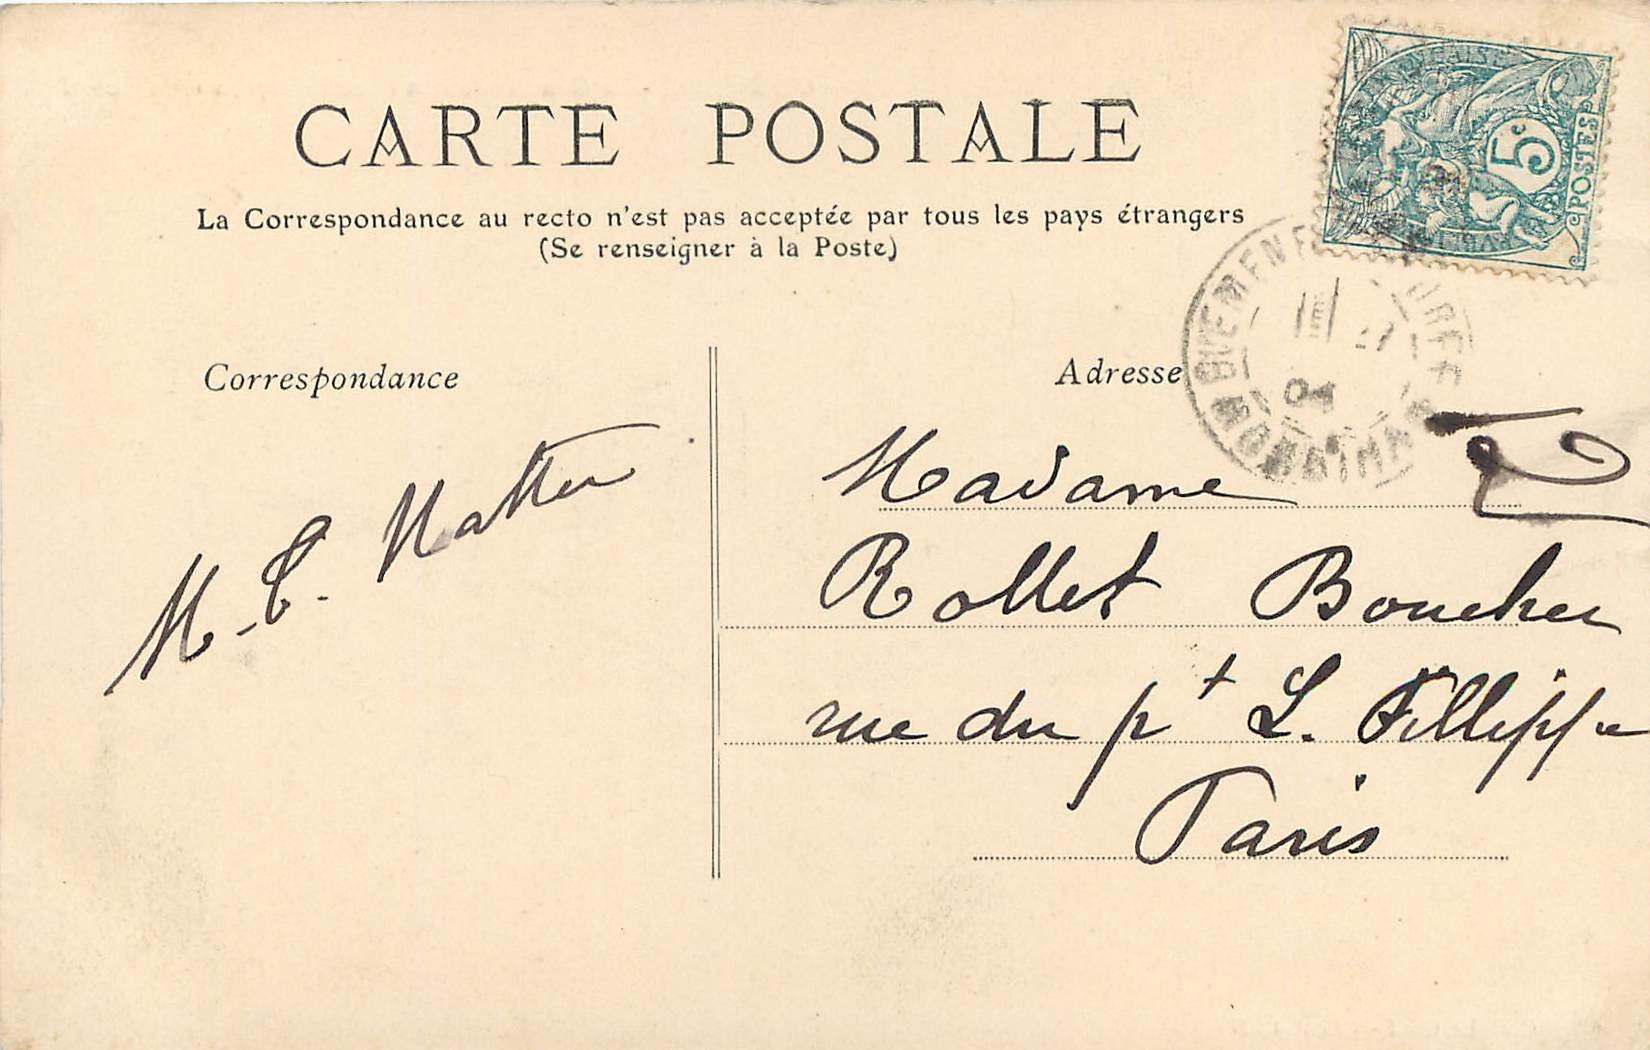 CARTE POSTALE
La Correspondance au recto n'est pas acceptée par tous les pays étrangers
(Se renseigner à la Poste)
5c
POSTES
Correspondance
Adresse
MORBIHAN
04
M. C.
Madame
Rollet Boucher
rue du pt L. Fillippe
Paris